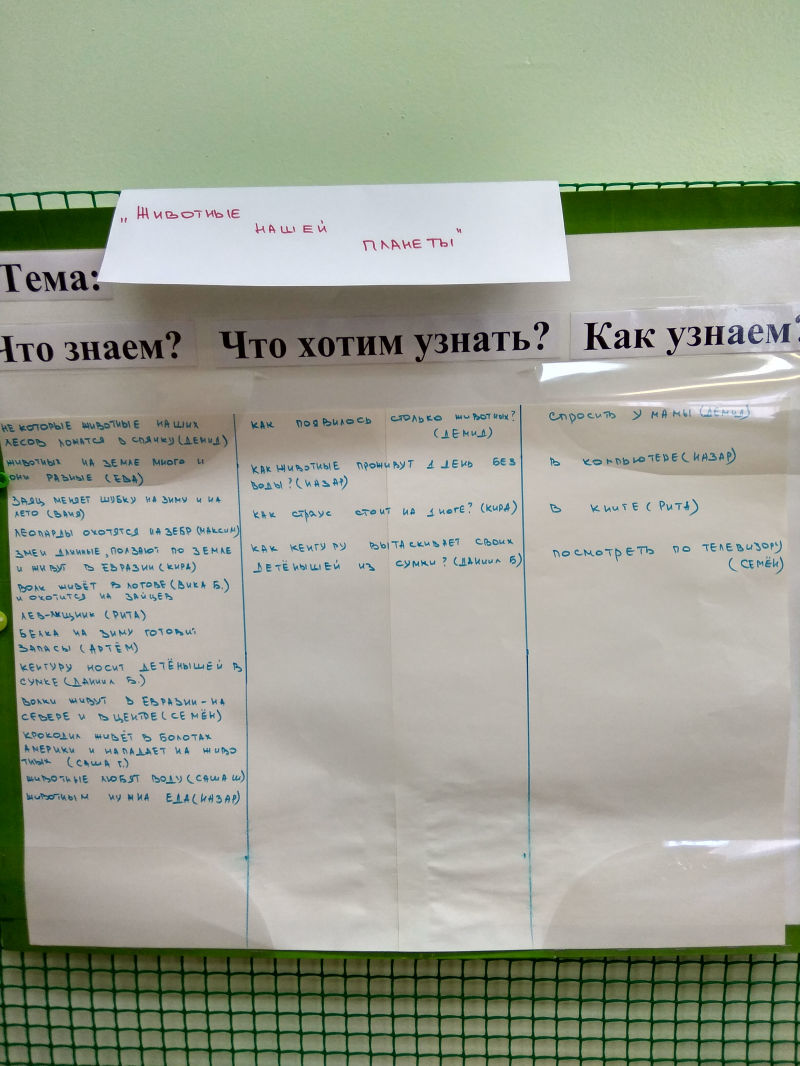 „Животные
нашей
планеты"
Тема:
Что знаем?
Что хотим узнать?
Как узнаем?
НЕКОТОРЫЕ ЖИВОТНЫЕ НАШИХ
ЛЕСОВ ЛОЖАТСЯ В СПЯЧКУ (ДЕМИД)
ЖИВОТНЫХ НА ЗЕМЛЕ МНОГО И
ОНИ РАЗНЫЕ (ЕВА)
ЗАЯЦ МЕНЯЕТ ШУБКУ НА ЗИМУ И НА
ЛЕТО (ВАНЯ)
ЛЕОПАРДЫ ОХОТЯТСЯ НА ЗЕБР (МАКСИМ)
ЗМЕИ ДЛИННЫЕ, ПОЛЗАЮТ ПО ЗЕМЛЕ
И ЖИВУТ В ЕВРАЗИИ (КИРА)
ВОЛК ЖИВЁТ В ЛОГОВЕ (ВИКА Б.)
И ОХОТИТСЯ НА ЗАЙЦЕВ
ЛЕВ-ХИЩНИК (РИТА)
БЕЛКА НА ЗИМУ ГОТОВИТ
ЗАПАСЫ (АРТЁМ)
КЕНГУРУ НОСИТ ДЕТЁНЫШЕЙ В
СУМКЕ (ДАНИИЛ Б.)
ВОЛКИ ЖИВУТ В ЕВРАЗИИ - НА
СЕВЕРЕ И В ЦЕНТРЕ (СЕМЁН)
КРОКОДИЛ ЖИВЁТ В БОЛОТАХ
АМЕРИКИ И НАПАДАЕТ НА ЖИВО
ТНЫХ (САША Г.)
ЖИВОТНЫЕ ЛЮБЯТ ВОДУ (САША Ш)
ЖИВОТНЫМ НУЖНА ЕДА (НАЗАР)
КАК ПОЯВИЛОСЬ СТОЛЬКО ЖИВОТНЫХ?
(ДЕМИД)
КАК ЖИВОТНЫЕ ПРОЖИВУТ 1 ДЕНЬ БЕЗ
ВОДЫ? (НАЗАР)
КАК СТРАУС СТОИТ НА 1 НОГЕ? (КИРА)
КАК КЕНГУРУ ВЫТАСКИВАЕТ СВОИХ
ДЕТЁНЫШЕЙ ИЗ СУМКИ? (ДАНИИЛ Б)
СПРОСИТЬ У МАМЫ (ДЕМИД)
В КОМПЬЮТЕРЕ (НАЗАР)
В КНИГЕ (РИТА)
ПОСМОТРЕТЬ ПО ТЕЛЕВИЗОРУ
(СЕМЁН)